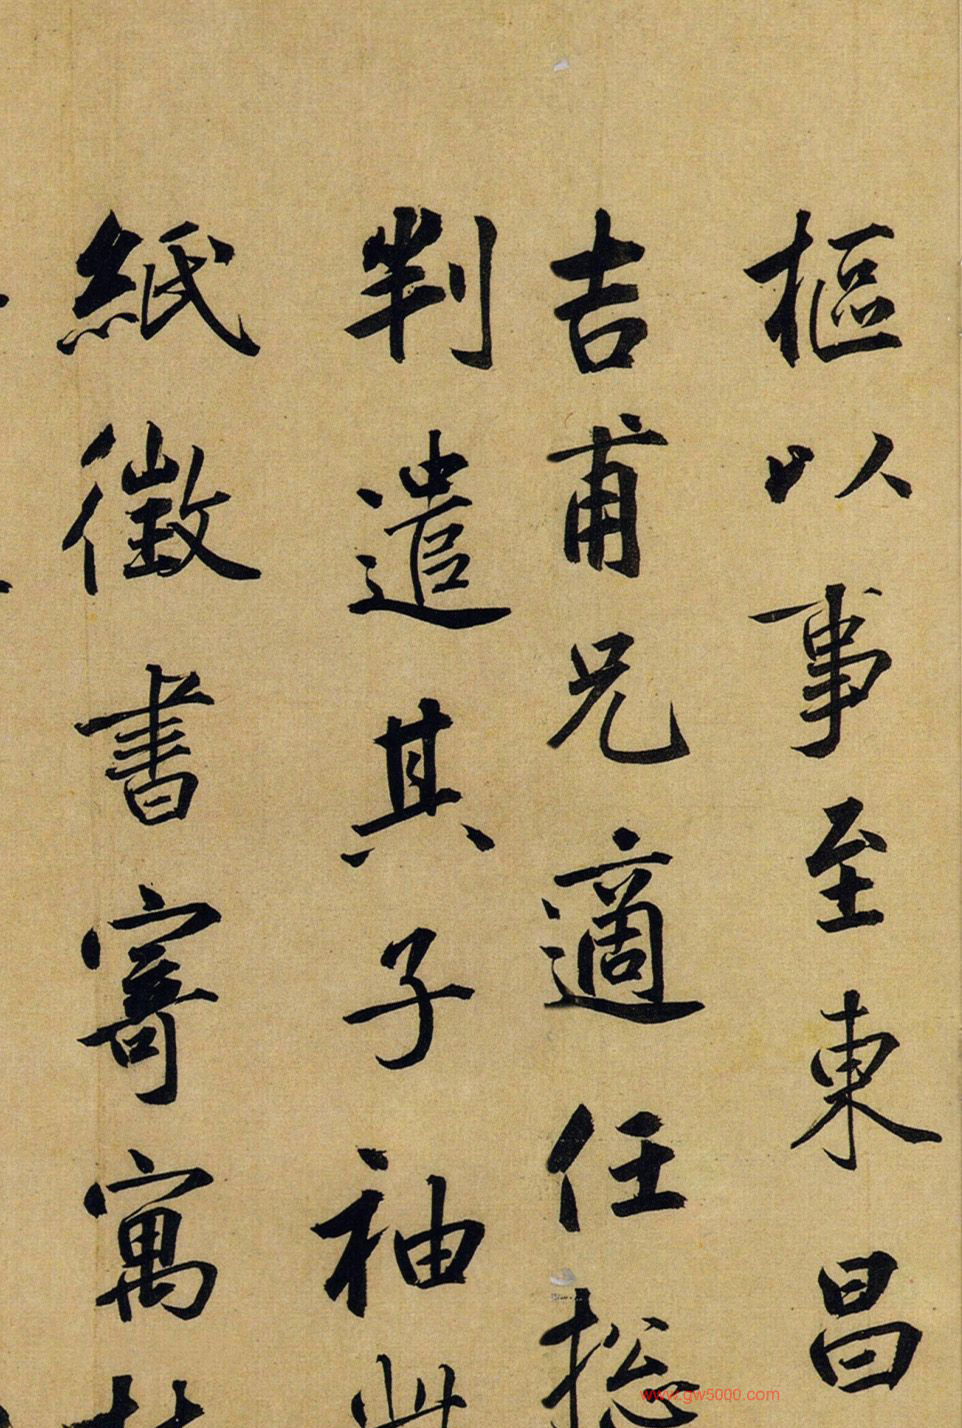 樞以事至東昌
吉甫兄適任摠
判遣其子袖此
紙徵書寄寓
www.gw5000.com